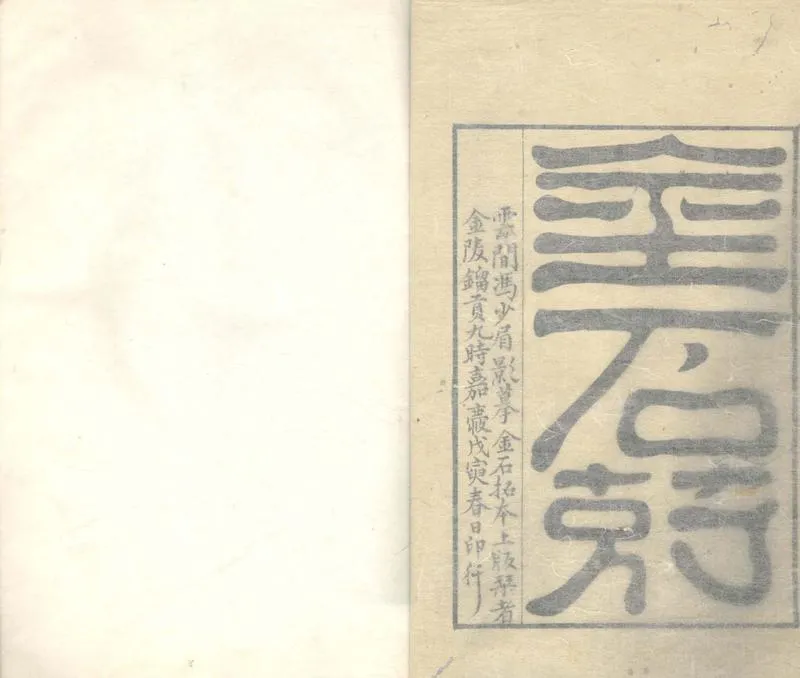 金石莂
雲間馮少眉影摹金石拓本上版栞者
金陵鎦貢九時嘉慶戊寅春日印行